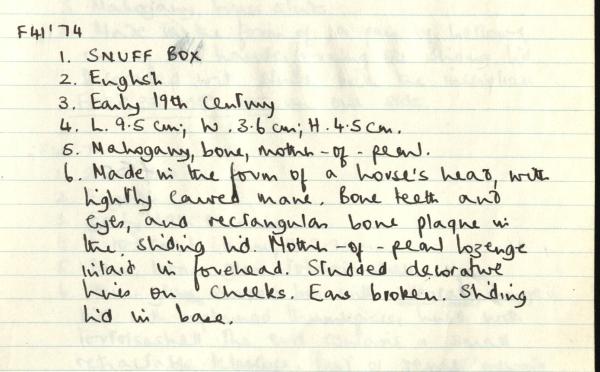 F41'74
1. SNUFF BOX
2. English
3. Early 19th century
4. L. 9.5 cm; W. 3.6 cm; H. 4.5 cm.
5. Mahogany, bone, mother-of-pearl.
6. Made in the form of a horse's head, with
lightly carved mane. Bone teeth and
eyes, and rectangular bone plaque in
the sliding lid. Mother-of-pearl lozenge
inlaid in forehead. Studded decorative
lines on cheeks. Ears broken. Sliding
lid in base.